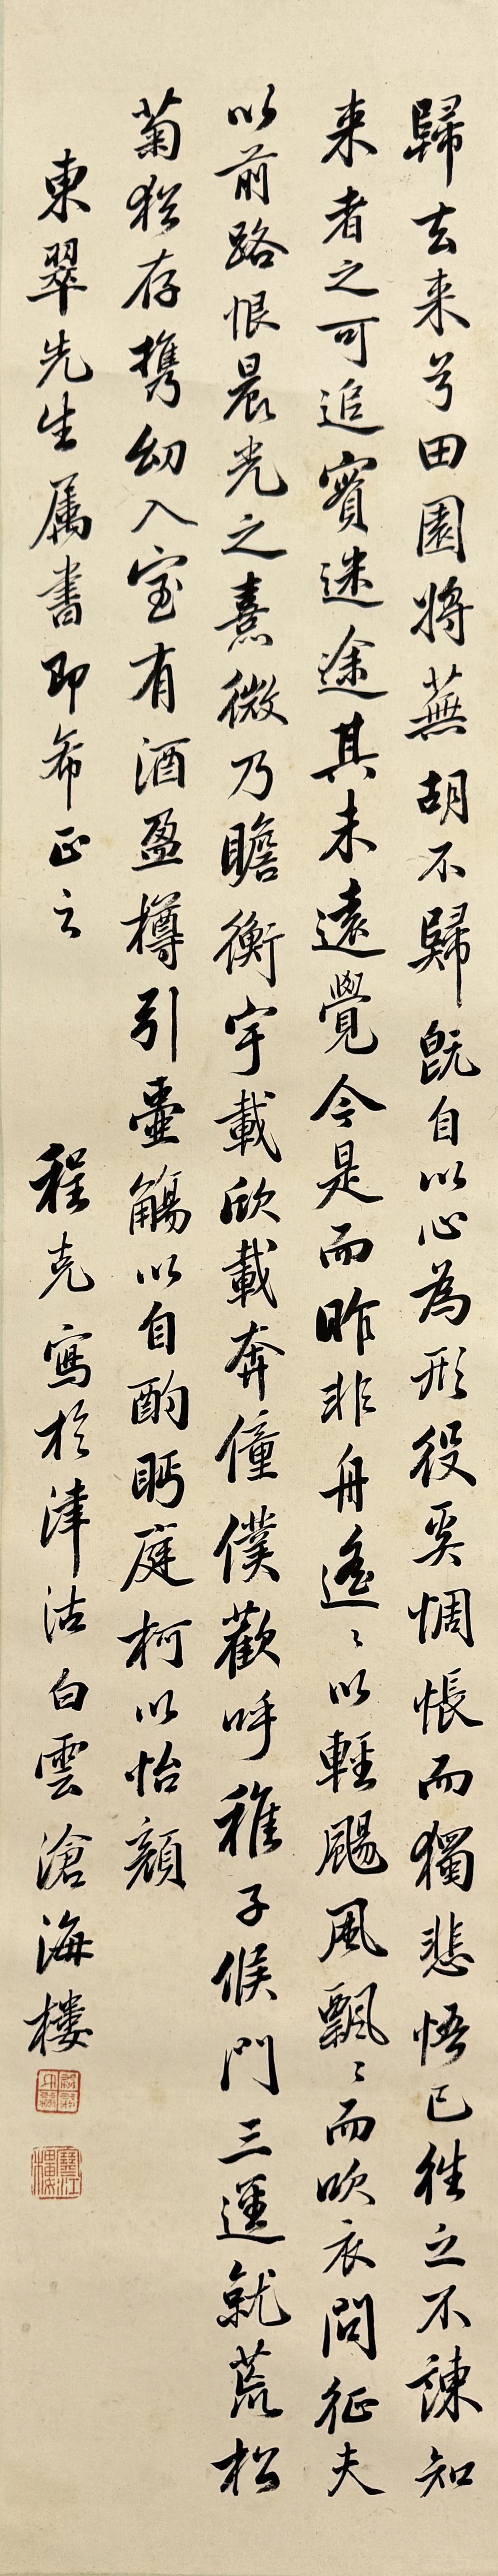 歸去来兮田園將蕪胡不歸旣自以心為形役奚惆悵而獨悲悟已往之不諫知
来者之可追實迷途其未遠覺今是而昨非舟遙〻以輕颺風飄〻而吹衣問征夫
以前路恨晨光之熹微乃瞻衡宇載欣載奔僮僕歡呼稚子候門三逕就荒松
菊猶存携幼入室有酒盈樽引壷觴以自酌眄庭柯以怡顔
東翠先生属書即希正之
程克寫於津沽白雲滄海樓